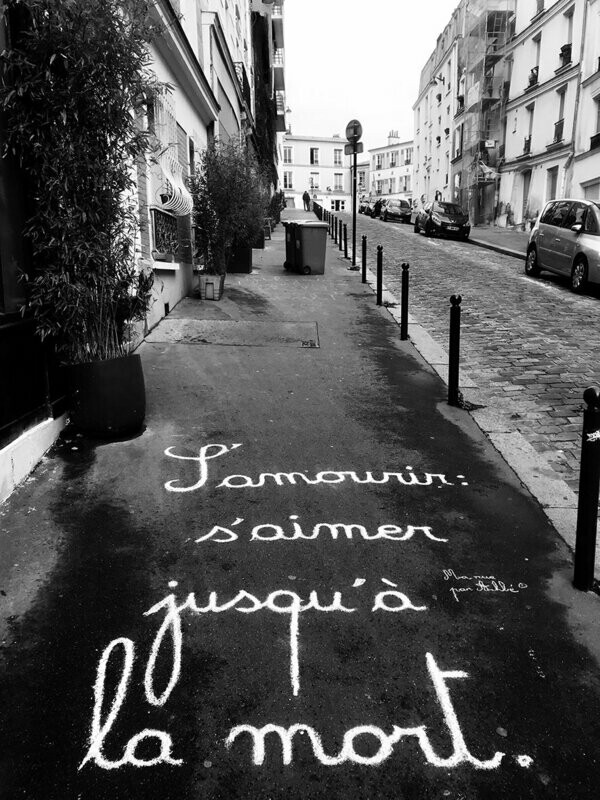 S'amourir:
s'aimer
jusqu'à
la mort.
Ma rue
par